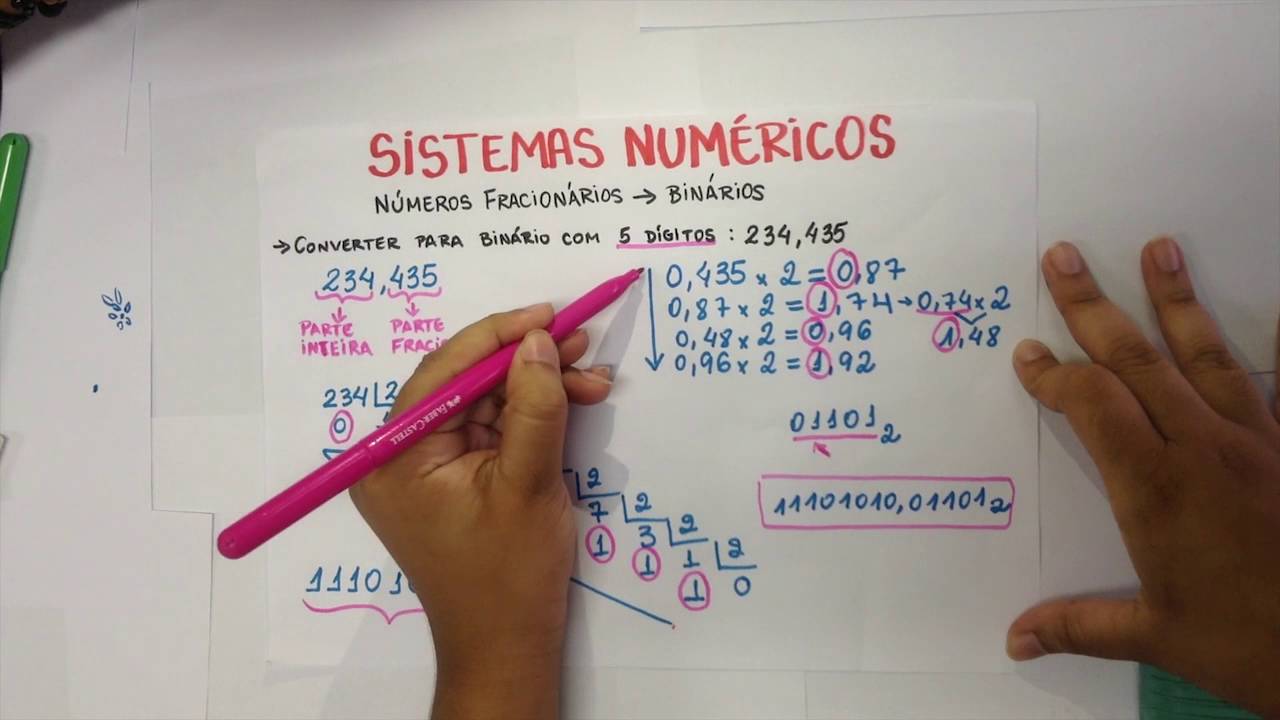 SISTEMAS NUMÉRICOS
NÚMEROS FRACIONÁRIOS → BINÁRIOS
→ CONVERTER PARA BINÁRIO COM 5 DÍGITOS : 234,435
234,435
PARTE INTEIRA
PARTE
234 2
0
0,435 × 2 = 0,87
0,87 × 2 = 1,74 → 0,74 × 2
1,48
0,48 × 2 = 0,96
0,96 × 2 = 1,92
01101₂
11101010,01101₂
2
7 2
1 3 2
1 1 2
1 0
FABER-CASTELL